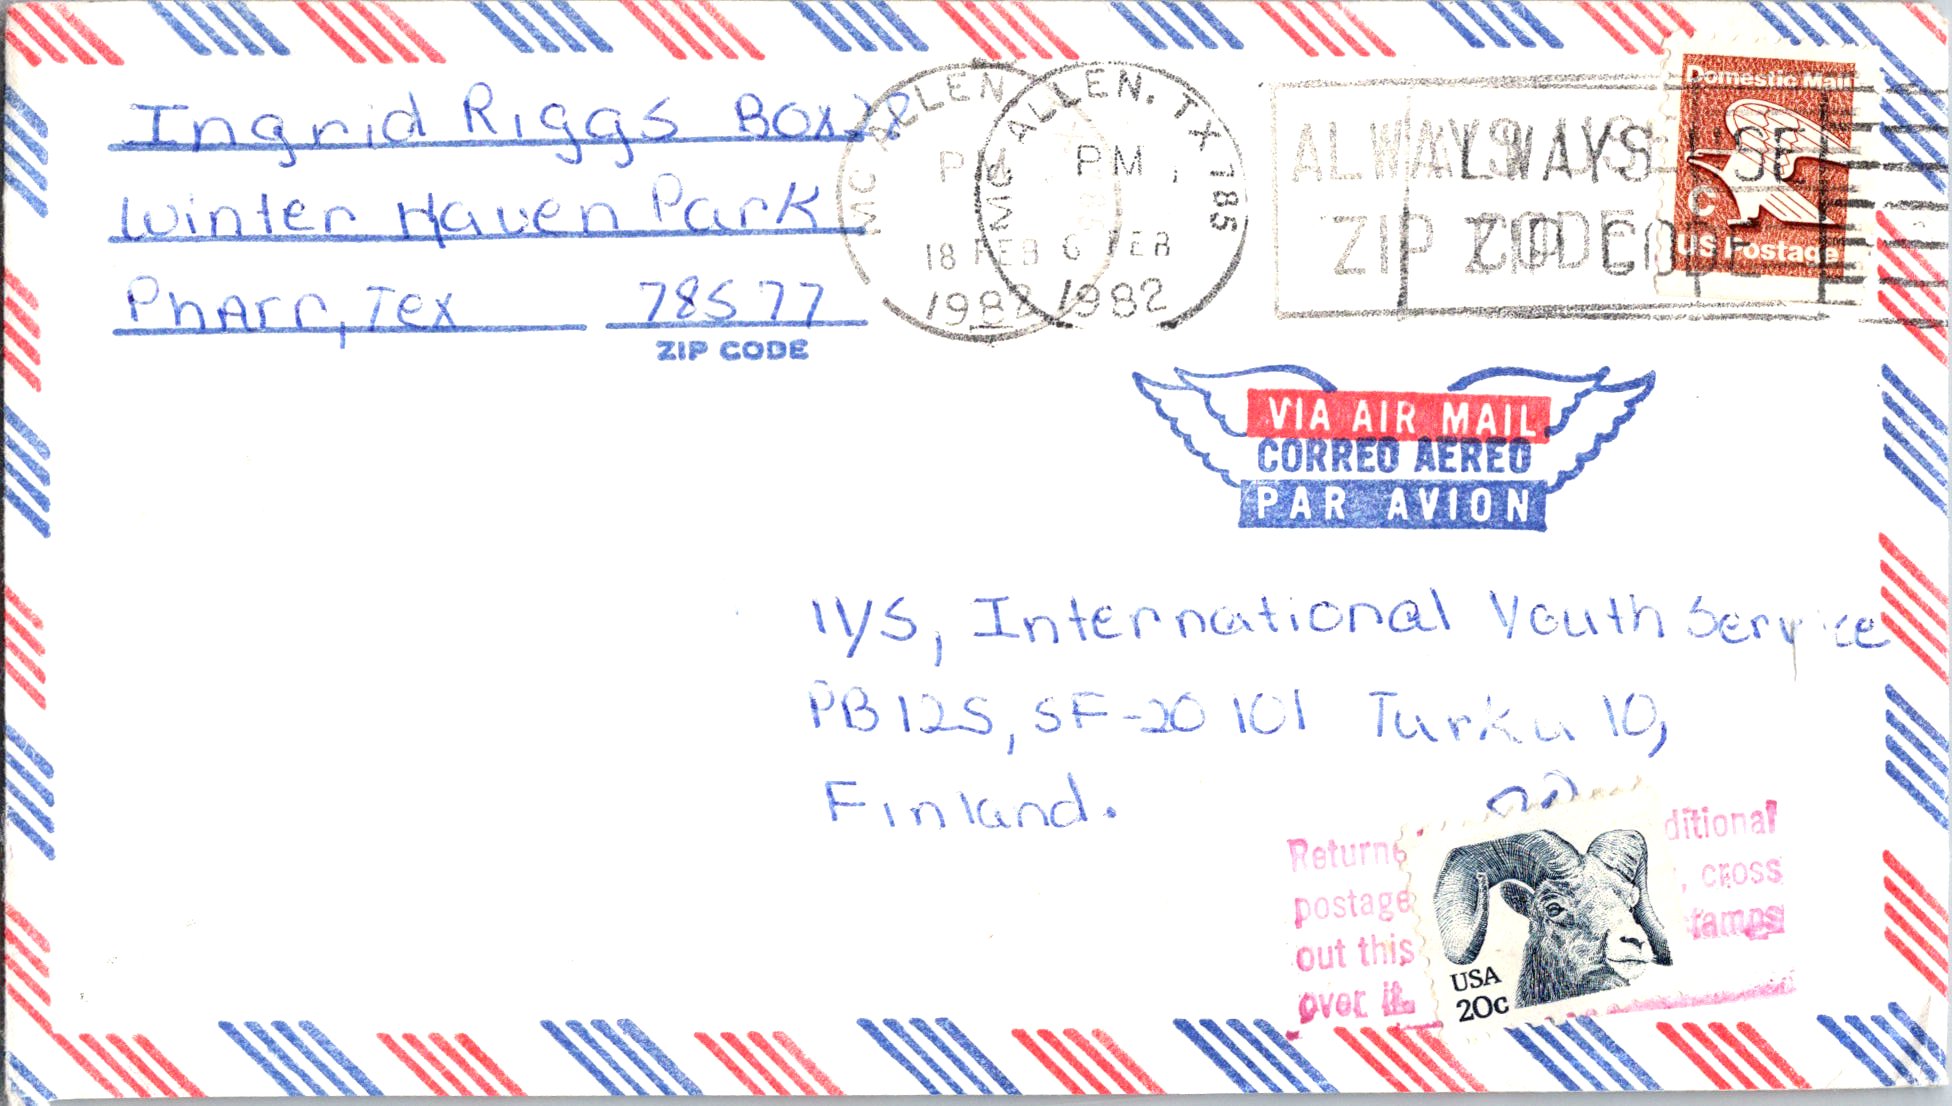 Ingrid Riggs Box 28
Winter Haven Park
Pharr, Tex 78577
ZIP CODE
MC ALLEN
PM
18 FEB
1982
MC ALLEN, TX 785
PM
6 FEB
1982
ALWAYS USE
ZIP CODE
ALWAYS USE
ZIP CODE
Domestic Mail
C
US Postage
VIA AIR MAIL
CORREO AEREO
PAR AVION
IYS, International Youth Service
PB 125, SF-20 101 Turku 10,
Finland.
Returne ditional
postage , cross
out this tamps
over it.
USA
20c